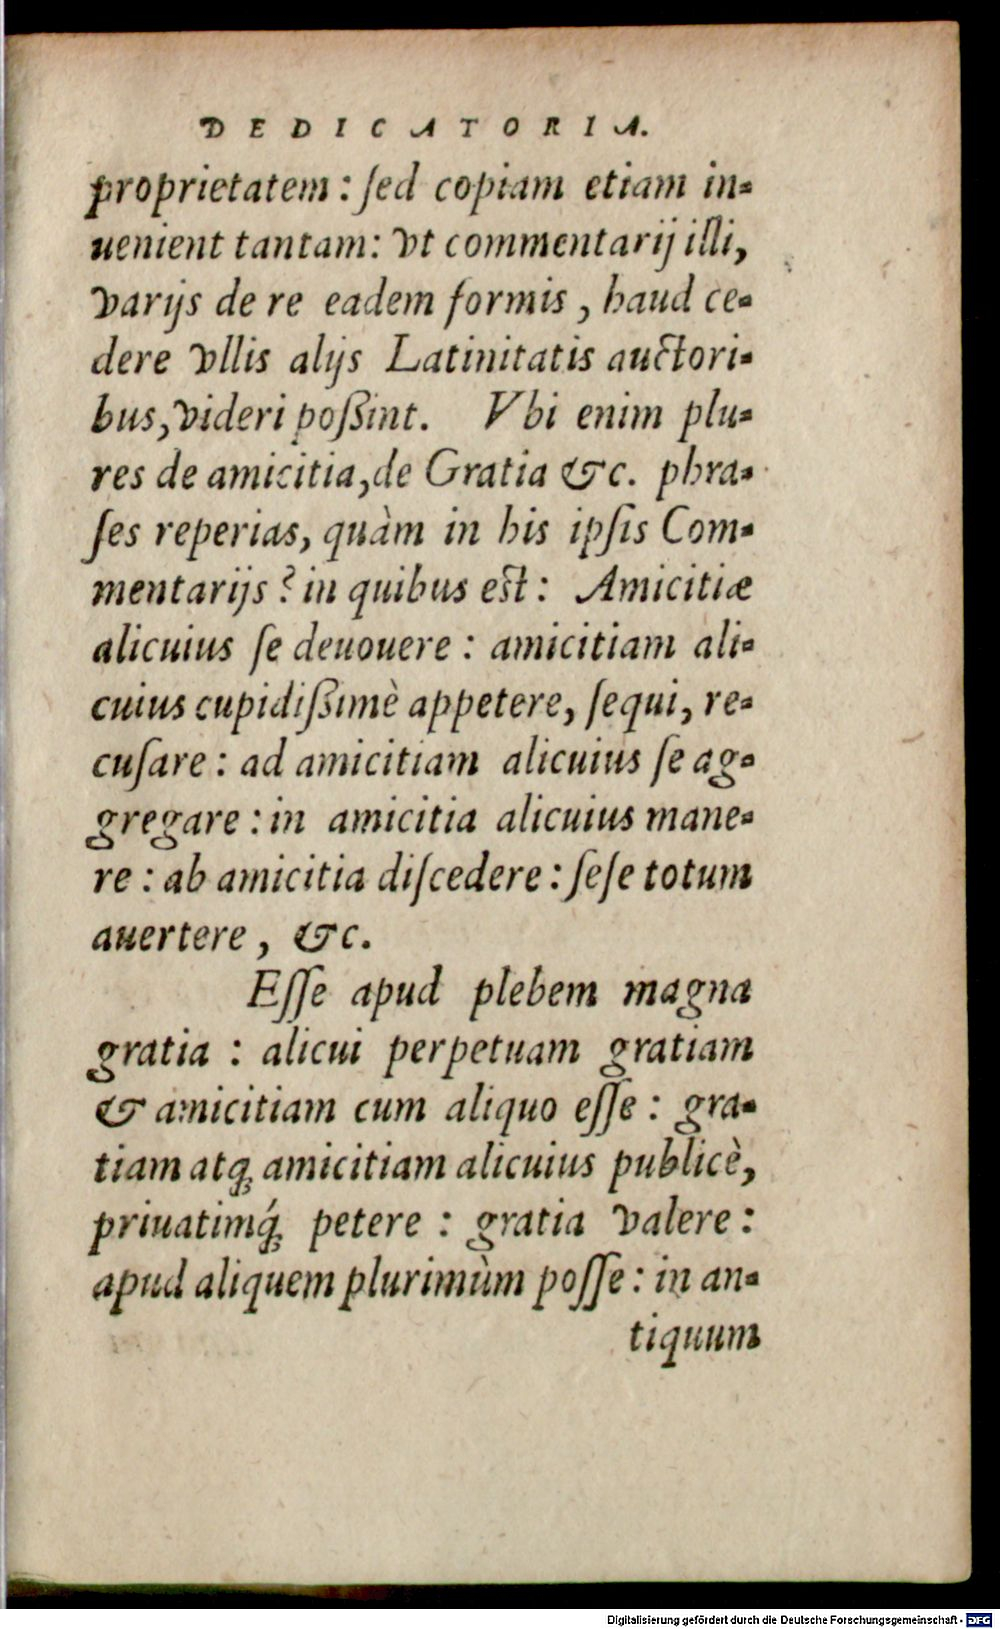 DEDICATORIA.
proprietatem: ſed copiam etiam in-
uenient tantam: vt commentarij illi,
varijs de re eadem formis, haud ce-
dere vllis alijs Latinitatis auctori-
bus, videri poßint. Vbi enim plu-
res de amicitia, de Gratia &c. phra-
ſes reperias, quàm in his ipſis Com-
mentarijs? in quibus est: Amicitiæ
alicuius ſe deuouere: amicitiam ali-
cuius cupidißimè appetere, ſequi, re-
cuſare: ad amicitiam alicuius ſe ag-
gregare: in amicitia alicuius mane-
re: ab amicitia diſcedere: ſeſe totum
auertere, &c.
Eſſe apud plebem magna
gratia: alicui perpetuam gratiam
& amicitiam cum aliquo eſſe: gra-
tiam atq; amicitiam alicuius publicè,
priuatimq́; petere: gratia valere:
apud aliquem plurimùm poſſe: in an-
tiquum
Digitalisierung gefördert durch die Deutsche Forschungsgemeinschaft - DFG